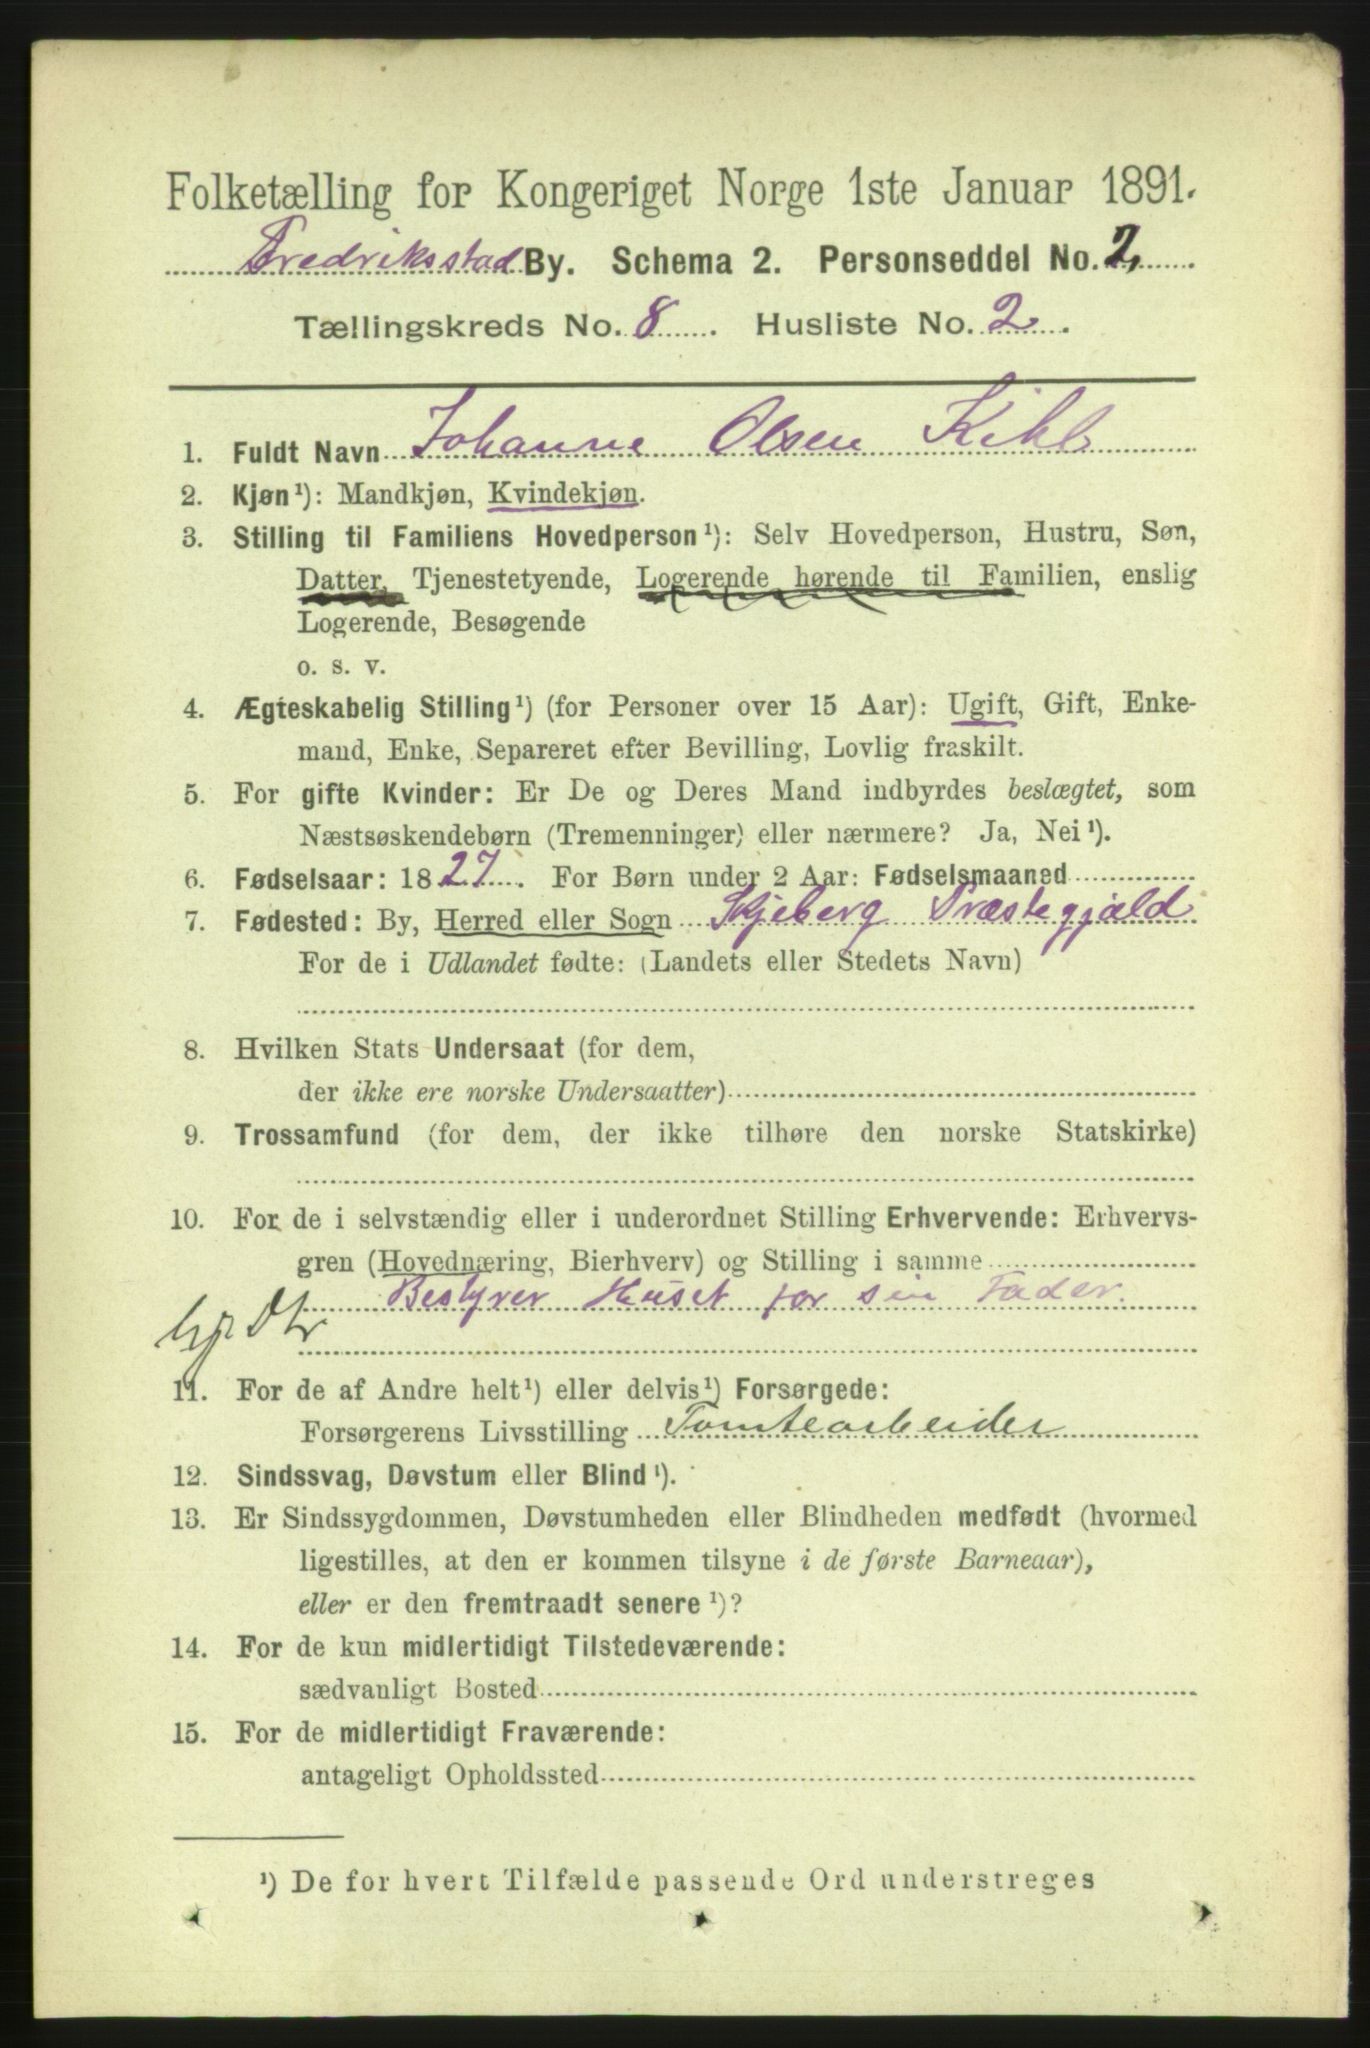 Folketælling for Kongeriget Norge 1ste Januar 1891.
Fredriksstad By. Schema 2. Personseddel No. 2,
Tællingskreds No. 8. Husliste No. 2.
1. Fuldt Navn Johanne Olsen Kihl
2. Kjøn ¹): Mandkjøn, Kvindekjøn.
3. Stilling til Familiens Hovedperson ¹): Selv Hovedperson, Hustru, Søn,
Datter, Tjenestetyende, Logerende hørende til Familien, enslig
Logerende, Besøgende
o. s. v.
4. Ægteskabelig Stilling ¹) (for Personer over 15 Aar): Ugift, Gift, Enke-
mand, Enke, Separeret efter Bevilling, Lovlig fraskilt.
5. For gifte Kvinder: Er De og Deres Mand indbyrdes beslægtet, som
Næstsøskendebørn (Tremenninger) eller nærmere? Ja, Nei ¹).
6. Fødselsaar: 1827. For Børn under 2 Aar: Fødselsmaaned
7. Fødested: By, Herred eller Sogn Skjeberg Præstegjæld
For de i Udlandet fødte: (Landets eller Stedets Navn)
8. Hvilken Stats Undersaat (for dem,
der ikke ere norske Undersaatter)
9. Trossamfund (for dem, der ikke tilhøre den norske Statskirke)
10. For de i selvstændig eller i underordnet Stilling Erhvervende: Erhvervs-
gren (Hovednæring, Bierhverv) og Stilling i samme
Bestyrer Huset for sin Fader.
11. For de af Andre helt ¹) eller delvis ¹) Forsørgede:
Forsørgerens Livsstilling Tomtearbeider
12. Sindssvag, Døvstum eller Blind ¹).
13. Er Sindssygdommen, Døvstumheden eller Blindheden medfødt (hvormed
ligestilles, at den er kommen tilsyne i de første Barneaar),
eller er den fremtraadt senere ¹)?
14. For de kun midlertidigt Tilstedeværende:
sædvanligt Bosted
15. For de midlertidigt Fraværende:
antageligt Opholdssted
¹) De for hvert Tilfælde passende Ord understreges